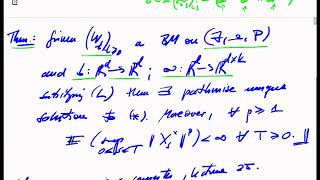 Thm: Given (W_t)_{t≥0} a BM on (Ω, 𝓕, P)
and b: R^d → R^d ; σ: R^d → R^{d×k}
satisfying (L) then ∃ pathwise unique
solution to (*). Moreover, ∀ p ≥ 1
E( sup_{0≤s≤T} ‖X_s^x‖^p ) < ∞ ∀ T ≥ 0.
lecture 25.